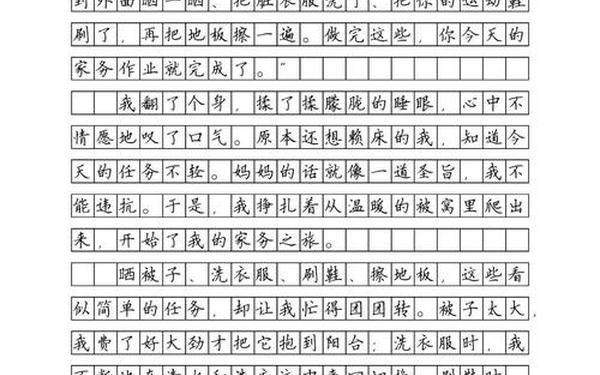 到外面晒一晒、把脏衣服洗了、把你的运动鞋
刷了，再把地板擦一遍。做完这些，你今天的
家务作业就完成了。”
我翻了个身，揉了揉朦胧的睡眼，心中不
情愿地叹了口气。原本还想赖床的我，知道今
天的任务不轻。妈妈的话就像一道圣旨，我不
能违抗。于是，我挣扎着从温暖的被窝里爬出
来，开始了我的家务之旅。
晒被子、洗衣服、刷鞋、擦地板，这些看
似简单的任务，却让我忙得团团转。被子太大，
我费了好大劲才把它抱到阳台；洗衣服时，我